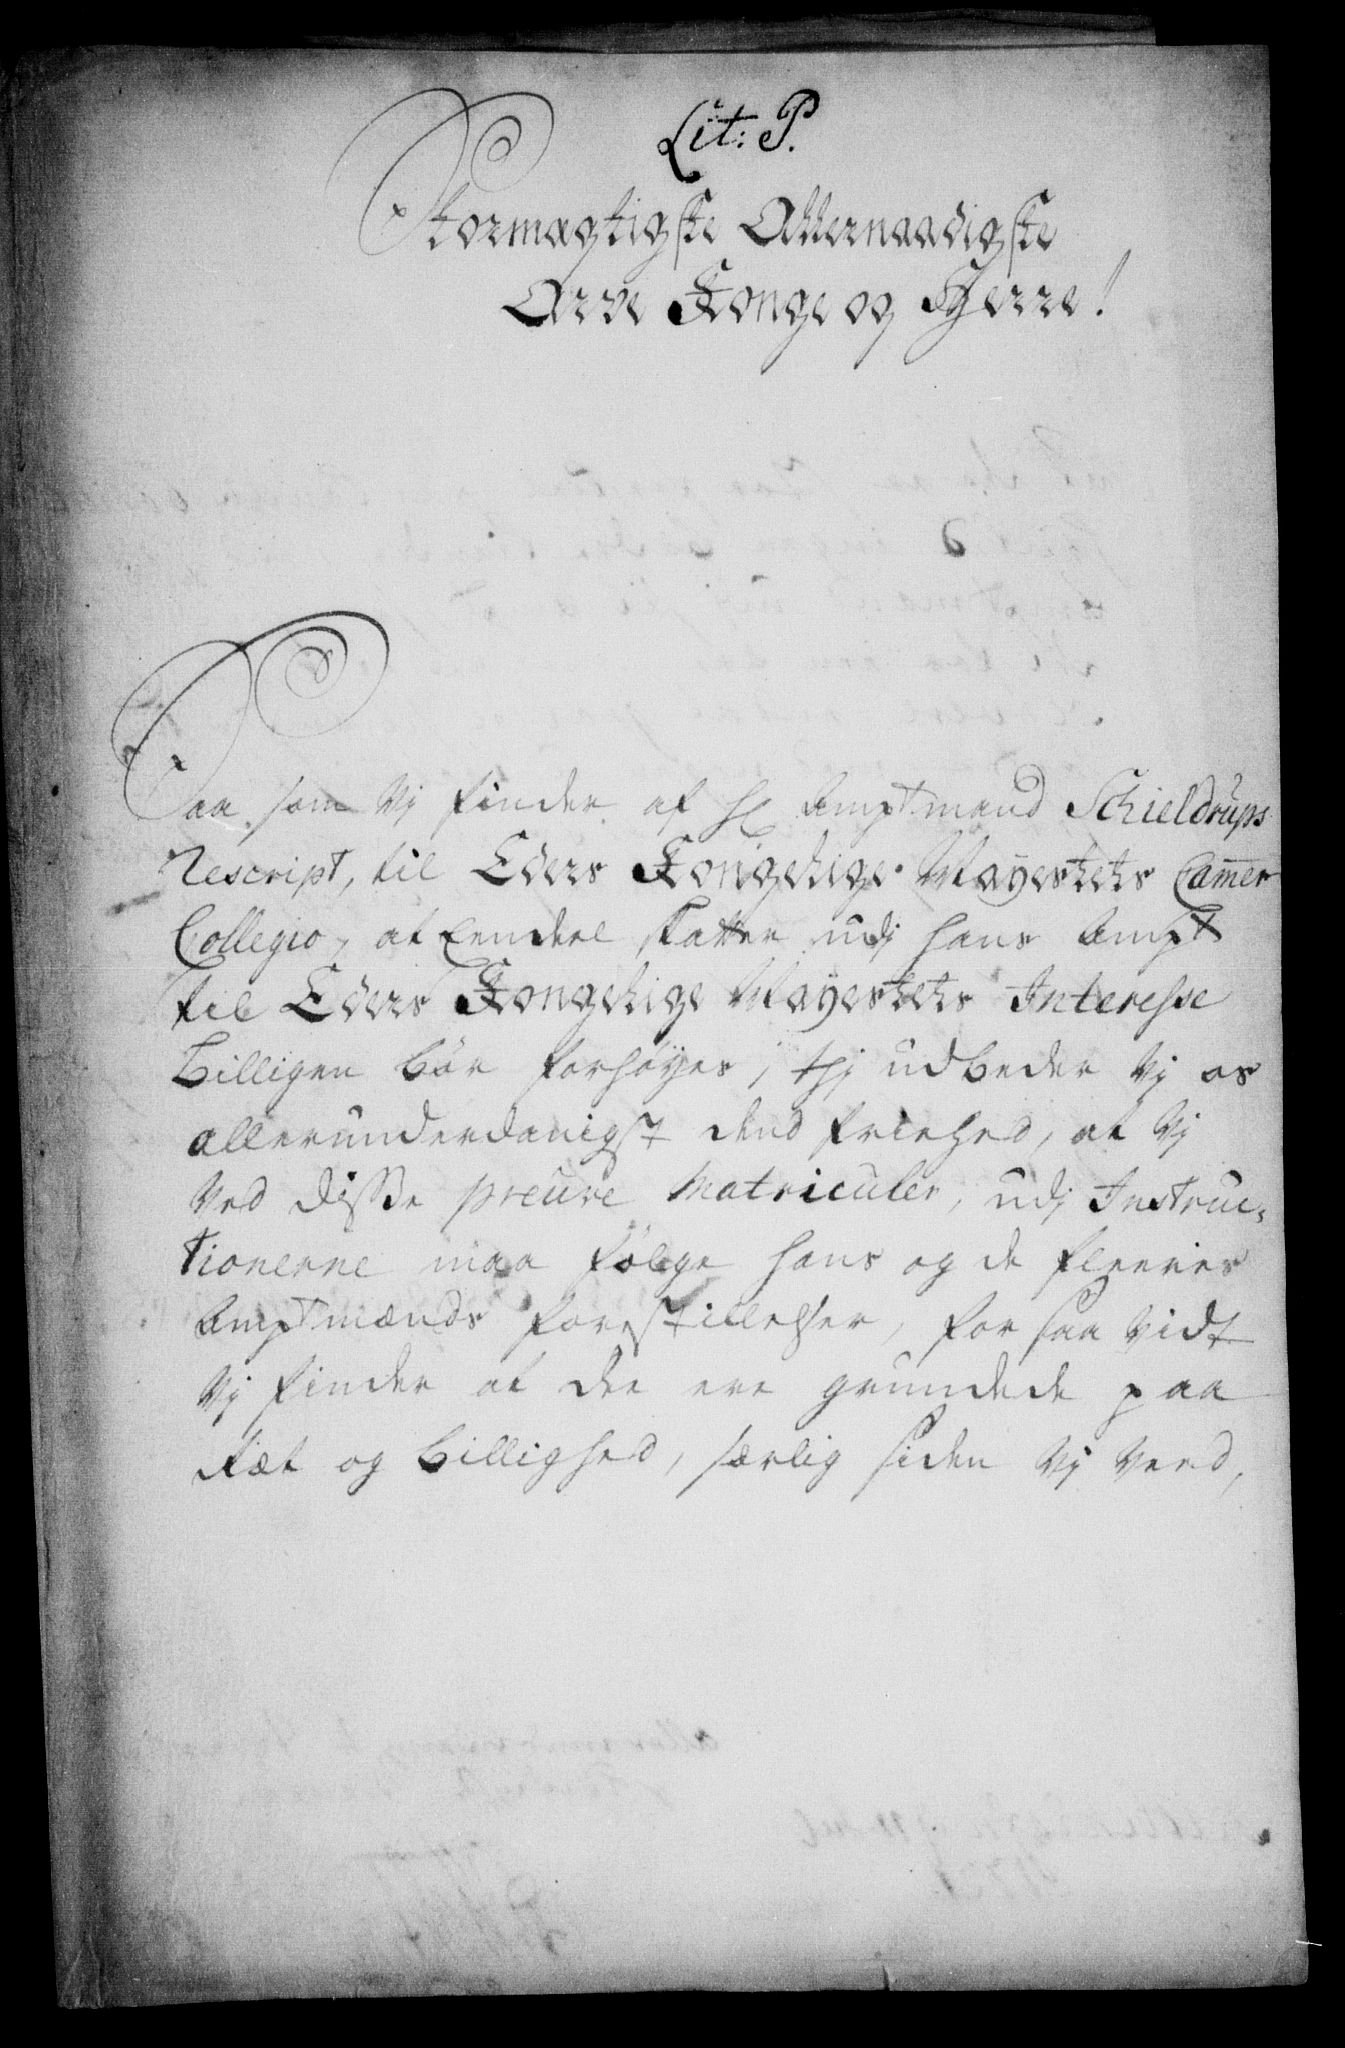 Lit: P.
Stormægtigste Allernaadigste
Arve Konge og Herre!
Saa som Vj finder af Hr Amptmand Schieldrups
Rescript, til Eders Kongelige Mayestets Cam̄er
Collegio, at Eendeel skatter udj hans Ampt
til Eders Kongelige Mayestets Interesse
Billigen bör forhöyes, thj udbeder Vj os
allerunderdanigst dend friehed, at Vj
Ved disse preuve Matriculer, udj Instruc,
tionerne maa fölge hans og de fleeres
Amptmænds forestillelser, for saa vidt
Vj finder at dee ere grundede paa
Ræt og billighed, særlig siden Vj Veed,